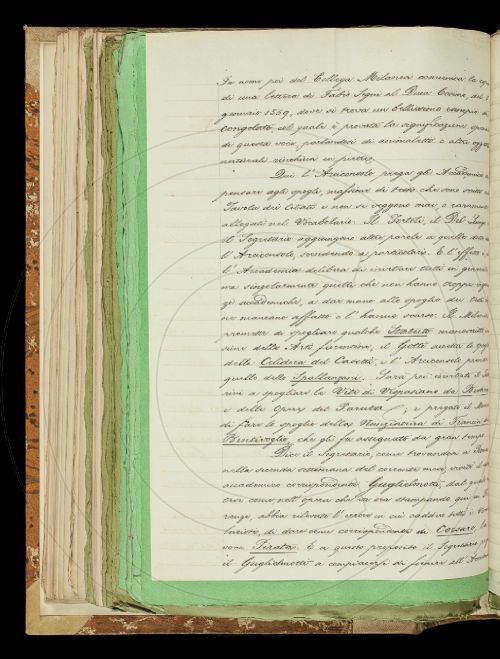 In nome poi del Collega Milanesi comunica la
di una lettera di Fabio Segni al Duca Cosimo, del
gennaio 1559, dove si trova un bellissimo esempio di
Congelato, col quale è provata la significazione
di questa voce, parlandosi di animaletti e altri
naturali rinchiusi in pietre.
Qui l'Arciconsolo prega gli Accademici a
pensare agli spogli, massime di testi che sono nella
Tavola dei Citati e non si veggono mai, o raramente
allegati nel Vocabolario. Il Tortoli, il Del
il Segretario aggiungono altre parole a quelle
l'Arciconsolo, venendo a particolari. E l'
l'Accademia delibera di invitare tutti in
ma singolarmente quelli che non hanno troppe
accademiche, a dar mano allo spoglio dei
o mancano affatto o l'hanno scarso. Il
promette di spogliare qualche Statuto manoscritto
delle Arti fiorentine, il Gotti accetta lo
della Celidora del Casotti, e l'Arciconsolo
quello dello Spallanzani. Sarà poi invitato il
a spogliare la Vita di Vespasiano da
e delle Opere del Paruta; e pregati il
di fare lo spoglio della Nunziatura di Francia del
Bentivoglio, che gli fu assegnato da gran tempo.
Dice il Segretario, come trovandosi a
nella seconda settimana del corrente mese, visitò
accademico corrispondente Guglielmotti, dal quale
come nell'opera che va ora stampando qui in
abbia rilevato l'errore in cui caddero tutti i
di dare come corrispondente di Corsaro, la
voce Pirata. E a questo proposito il Segretario
il Guglielmotti a compiacersi di fornire all'